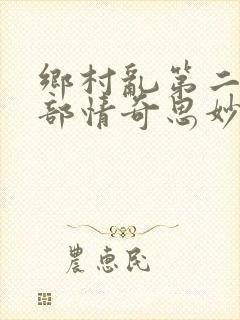 鄉村亂第二
部情奇思妙
農惠民